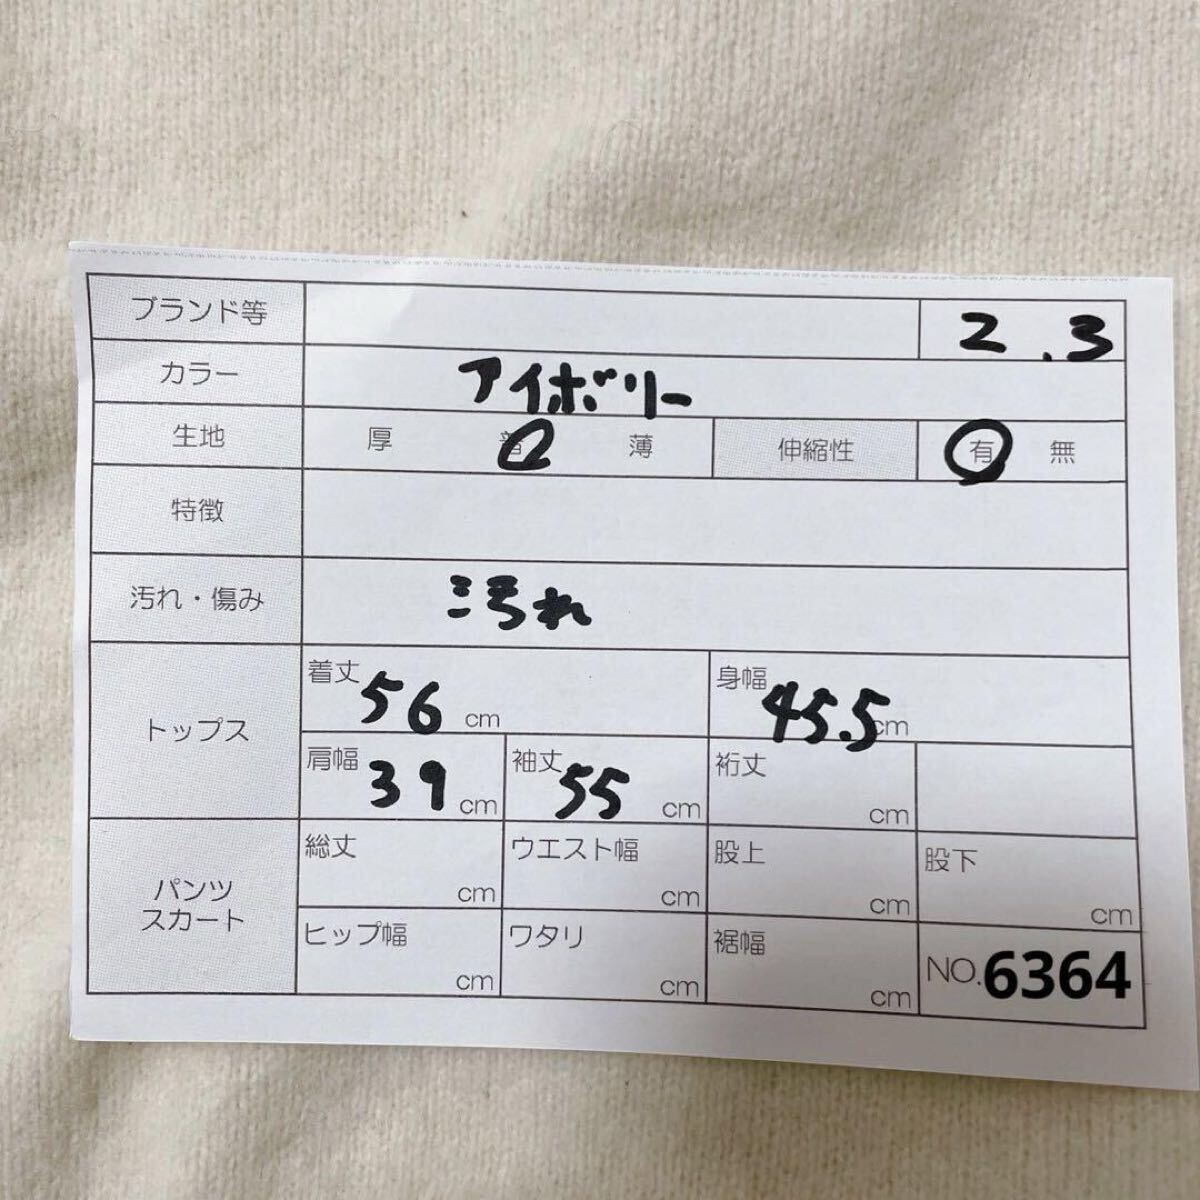 ブランド等 2.3
カラー アイボリー
生地 厚 普 薄 伸縮性 有 無
特徴
汚れ・傷み 汚れ
トップス
着丈 56 cm 身幅 45.5 cm
肩幅 39 cm 袖丈 55 cm 裄丈 cm
パンツ
スカート
総丈 cm ウエスト幅 cm 股上 cm 股下 cm
ヒップ幅 cm ワタリ cm 裾幅 cm NO.6364